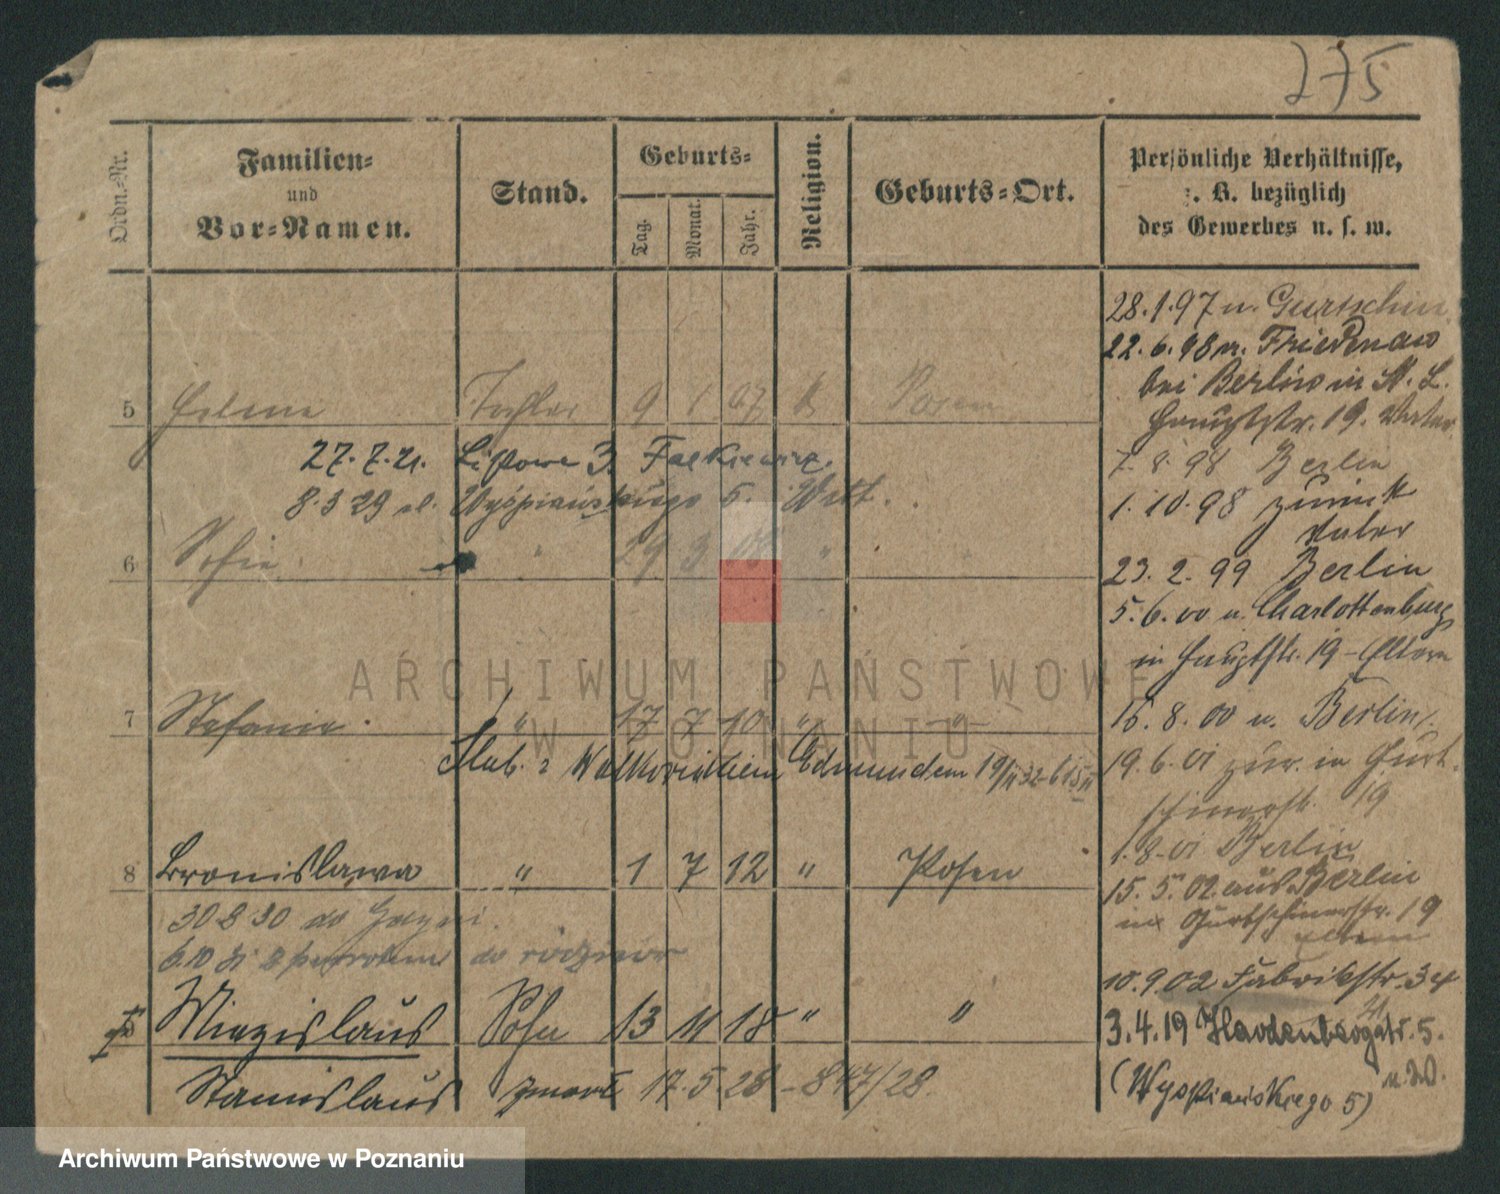 275
Ordn.-Nr.
Familien-
und
Vor-Namen.
Stand.
Geburts-
Tag.
Monat.
Jahr.
Religion.
Geburts-Ort.
Persönliche Verhältnisse,
z. B. bezüglich
des Gewerbes u. s. w.
28.1.97 n. Gurtschin
22.6.98 n. Friedenau
bei Berlin in St. L.
Hauptstr. 19. Vater
5 Helene Tochter 9 1 07 k Posen
27.7.21. Listowe 3. Falkiewicz.
7.8.98 Berlin
8.3 29 ul. Wyśpiańskiego 5. Witt.
1.10.98 zurück
Vater
6 Sofie " 29 3 08 "
23.2.99 Berlin
5.6.00 n. Charlottenburg
in Hauptstr. 19 - Eltern
7 Stefanie " 17 7 10 " "
16.8.00 n. Berlin
Ślub. z Walkowiakiem Edmundem 19/II 32
19.6.01 zur. in Gurt-
schinerstr. 19
1.8.01 Berlin
8 Bronislawa " 1 7 12 " Posen
15.5.02. aus Berlin
in Gurtschinerstr. 19
Eltern
30 8 30 do Gdyni
6.10 31 z powrotem do rodziców
10.9.02 Fabrikstr. 34
Miezislaus Sohn 13 11 18 " "
3.4.19 Hardenbergstr. 5.
Stanislaus zmarł 17.5.28 - 847/28.
(Wyspiańskiego 5)
ARCHIWUM PAŃSTWOWE
W POZNANIU
Archiwum Państwowe w Poznaniu